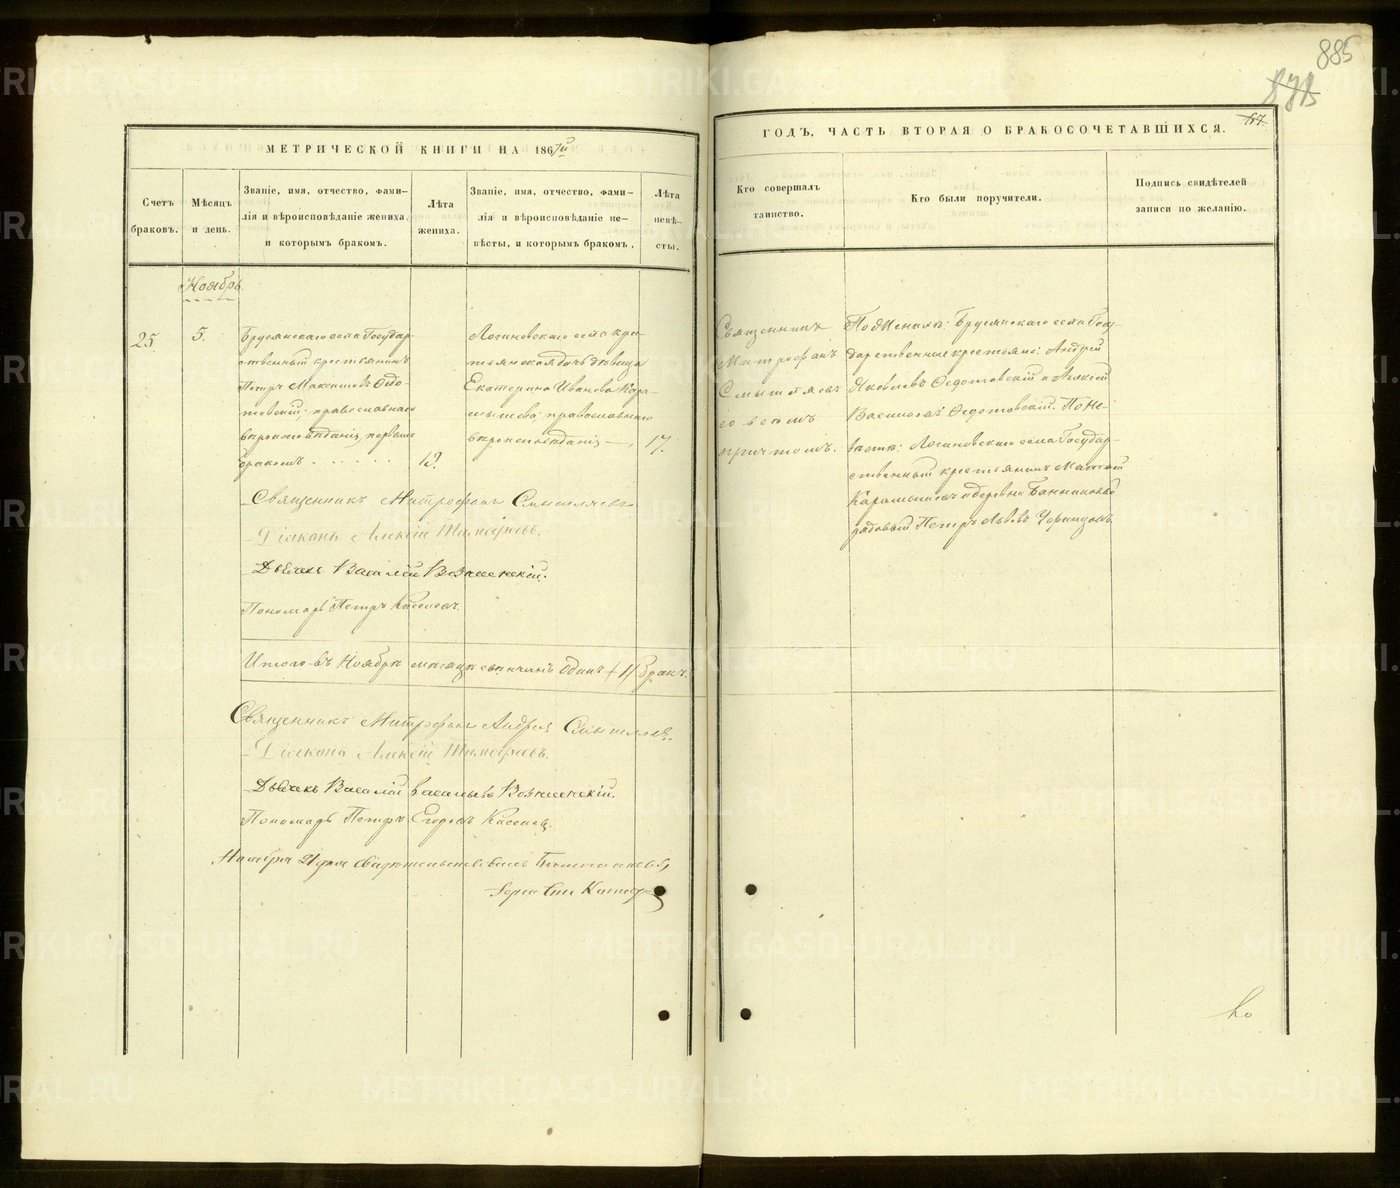 885
МЕТРИЧЕСКОЙ КНИГИ НА 1867й
ГОДЪ, ЧАСТЬ ВТОРАЯ О БРАКОСОЧЕТАВШИХСЯ.
Счетъ
браковъ.
Мѣсяцъ
и день.
Званіе, имя, отчество, фами-
лія и вѣроисповѣданіе жениха,
и которымъ бракомъ.
Лѣта
жениха.
Званіе, имя, отчество, фами-
лія и вѣроисповѣданіе не-
вѣсты, и которымъ бракомъ.
Лѣта
невѣ-
сты.
Кто совершалъ
таинство.
Кто были поручители.
Подпись свидѣтелей
записи по желанію.
Ноябрь.
25
5.
Брусянскаго села Государ-
ственный крестьянинъ
Петръ Максимовъ Ѳедо-
товскій; православнаго
вѣроисповѣданія, первымъ
бракомъ
18.
Логиновскаго села кре-
стьянская дочь дѣвица
Екатерина Иванова Кара-
мышева; православнаго
вѣроисповѣданія
17.
Священникъ
Митрофанъ
Смышляевъ
со всѣмъ
причтомъ.
По Женихѣ: Брусянскаго села Госу-
дарственные крестьяне: Андрей
Яковлевъ Ѳедотовскій и Алексѣй
Васильевъ Ѳедотовскій. По Не-
вѣстѣ: Логиновскаго села Государ-
ственный крестьянинъ
Карамышевъ и деревни
рядовый Петръ Львовъ
Священникъ Митрофанъ Смышляевъ
Діаконъ Алексѣй
Дьячекъ Василій Вознесенскій.
Пономарь Петръ
Итого въ Ноябрѣ мѣсяцѣ одинъ (1) бракъ.
Священникъ Митрофанъ Андреевъ Смышляевъ
Діаконъ Алексѣй
Дьячекъ Василій Васильевъ Вознесенскій.
Пономарь Петръ Егоровъ
Ноября 21 дня свидѣтельствовалъ
По
METRIKI.GASO-URAL.RU